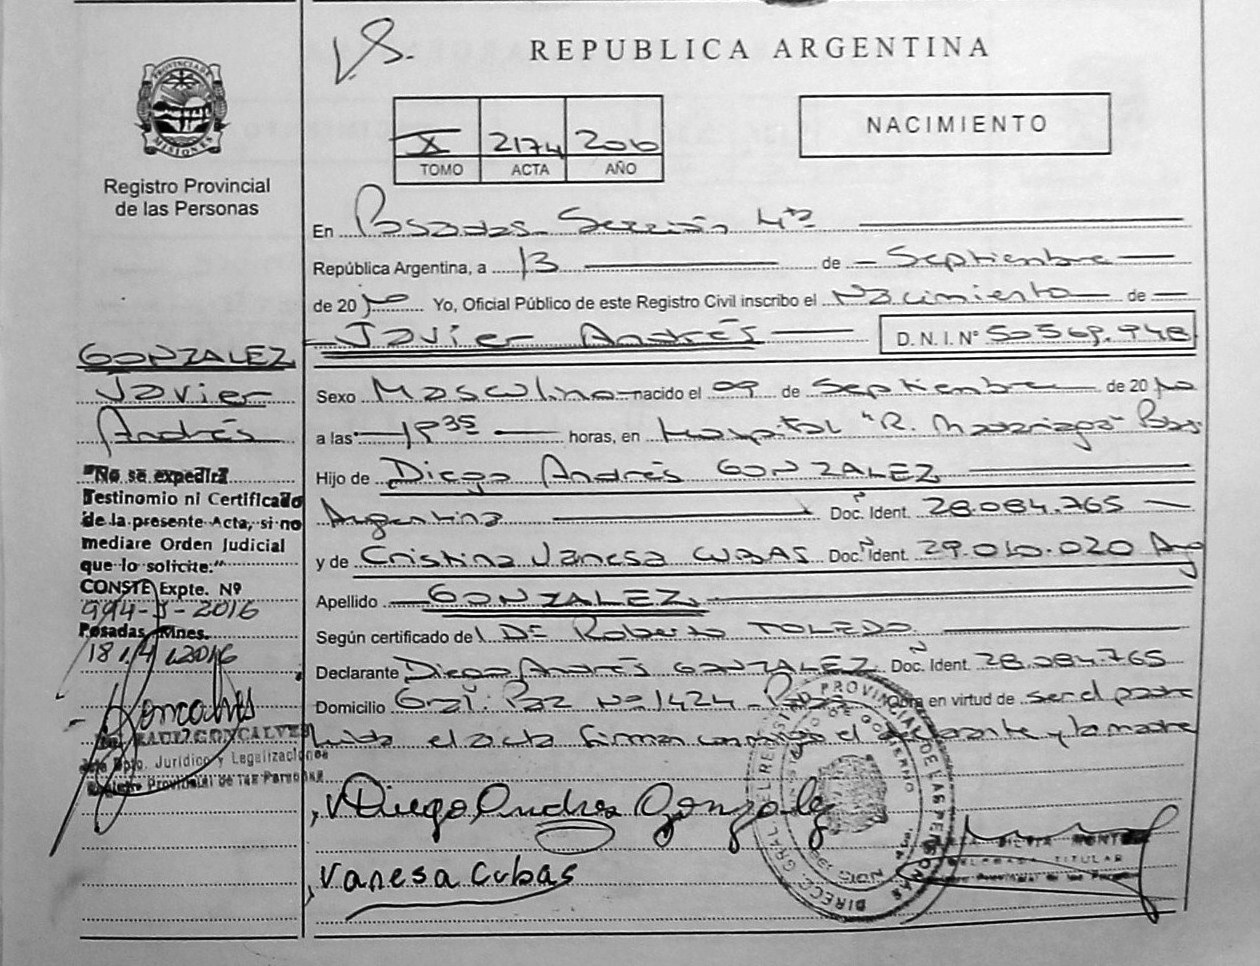 V.S.
REPUBLICA ARGENTINA
PROVINCIA DE
MISIONES
Registro Provincial
de las Personas
X 2174
TOMO ACTA AÑO
NACIMIENTO
En Posadas Sección 4ta
República Argentina, a 13 de Septiembre
de 20 Yo, Oficial Público de este Registro Civil inscribo el Nacimiento de
Javier Andrés D. N. I. Nº 50569.948
Sexo Masculino nacido el 09 de Septiembre de 20
a las horas, en Hospital "R. Madariaga"
Hijo de Diego Andrés GONZALEZ
Argentino Doc. Ident. 28.084.765
y de Cristina Vanesa CUBAS Doc. Ident. 29.010.020 Arg
Apellido GONZALEZ
Según certificado del DR Roberto TOLEDO
Declarante Diego Andrés GONZALEZ Doc. Ident. 28.084.765
Domicilio Gral. Paz Nº 1424 Obra en virtud de ser el padre
el acta firman conmigo el declarante y la madre
Diego Andres Gonzalez
Vanesa Cubas
GONZALEZ
Javier
Andrés
"No se expedirá
Testimonio ni Certificado
de la presente Acta, si no
mediare Orden Judicial
que lo solicite:"
CONSTE Expte. Nº
2016
Posadas, Mnes.
18 / 4 / 2016
Goncalves
RAUL GONCALVES
Jefe Dpto. Jurídico y Legalizaciones
Registro Provincial de las Personas
DIRECC. GRAL. DEL REGISTRO PROVINCIAL DE LAS PERSONAS
MINISTERIO DE GOBIERNO
TITULAR